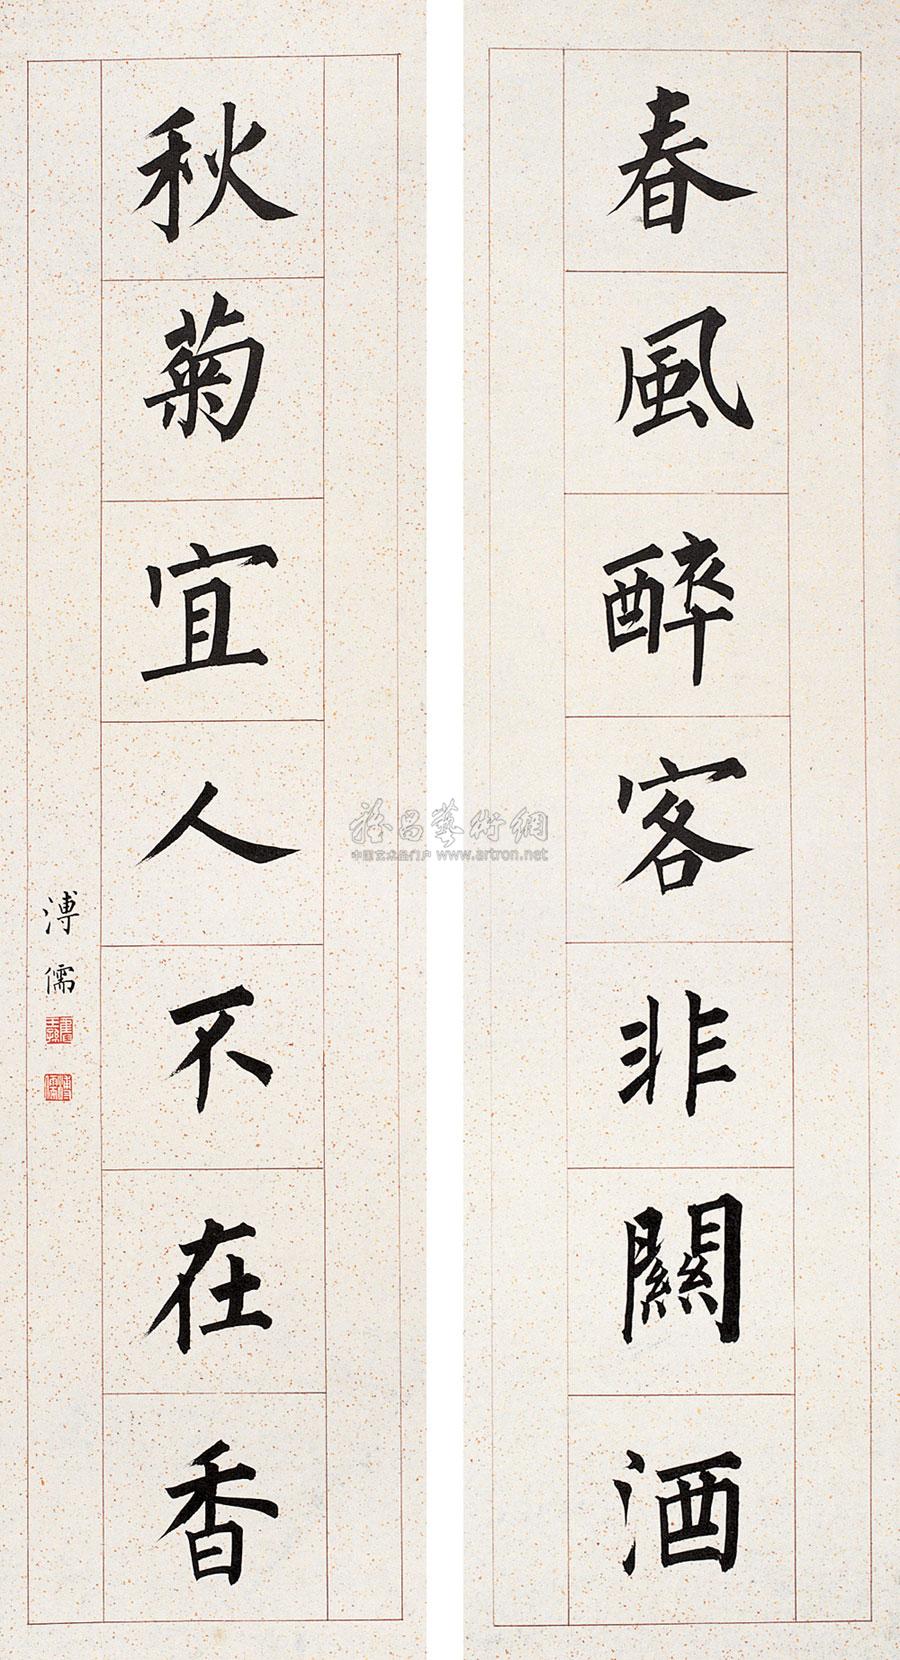 春風醉客非關酒
秋菊宜人不在香
溥儒
雅昌藝術網
中国艺术品门户 www.artron.net